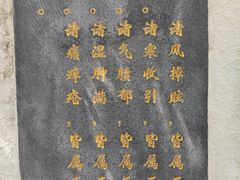 诸风掉眩，皆属
。诸寒收引，皆属
。诸气膹郁，皆属
。诸湿肿满，皆属
。诸痛痒疮，皆属